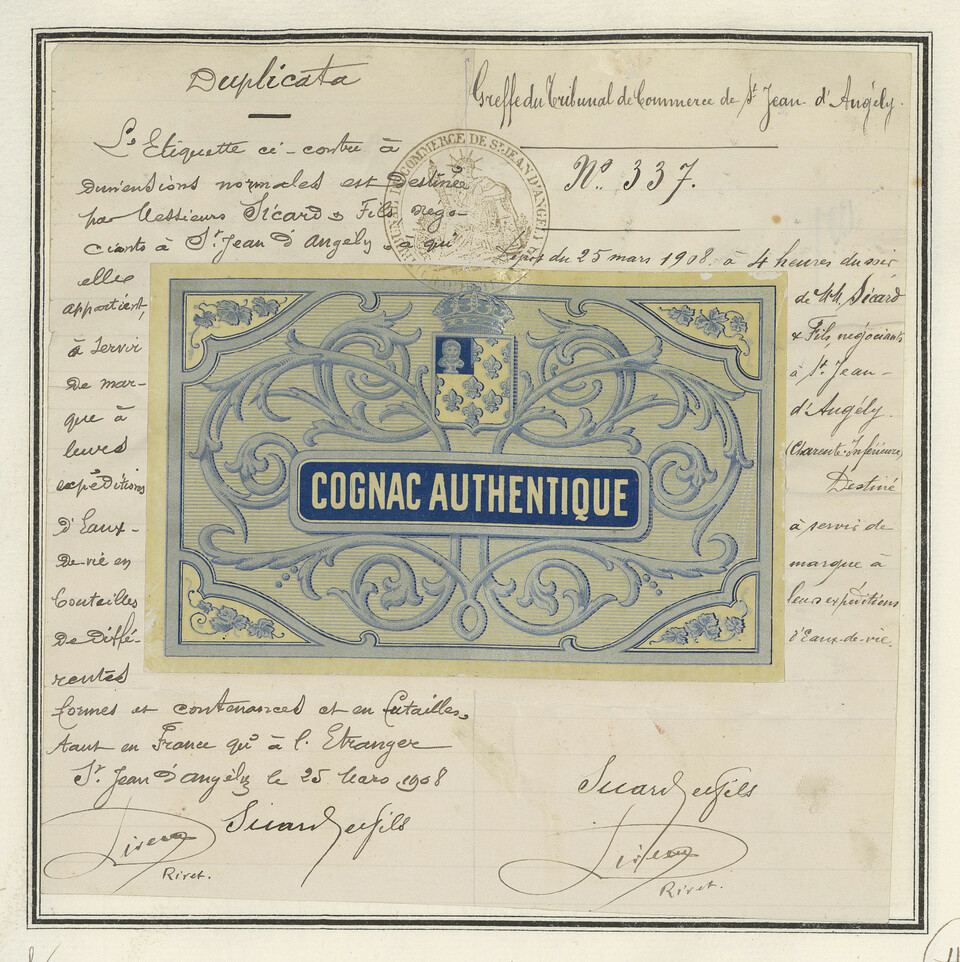 Duplicata
L'Etiquette ci-contre à
dimensions normales est Destinée
par Messieurs Sicard & Fils Négo-
ciants à St Jean d'Angély, à qui
elle
appartient,
à servir
De mar-
que à
leurs
expéditions
d'Eaux-
De-vie en
bouteilles
De Diffé-
rentes
formes et contenances et en futailles,
tant en France qu'à l'Etranger
St Jean d'Angély le 25 Mars 1908
Sicard et fils
Riret.
Greffe du Tribunal de Commerce de St Jean d'Angély.
No. 337.
Dépôt du 25 mars 1908 à 4 heures du soir
de MM. Sicard
& Fils négociants
à St Jean-
d'Angély
(Charente-Inférieure)
Destiné
à servir de
marque à
leurs expéditions
d'Eaux-de-vie.
Sicard et fils
Riret.
TRIBUNAL DE COMMERCE DE ST JEAN D'ANGELY
COGNAC AUTHENTIQUE